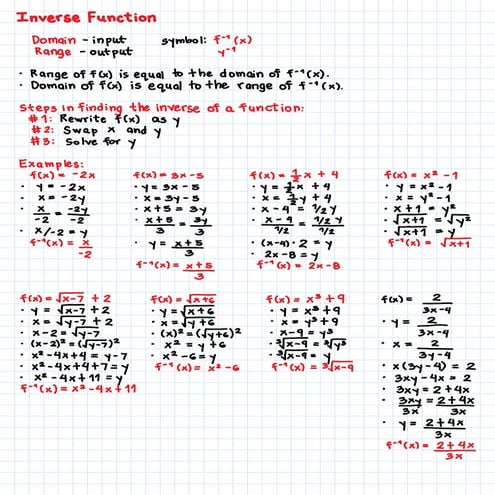 Inverse Function
Domain - input symbol: f⁻¹(x)
Range - output y⁻¹
· Range of f(x) is equal to the domain of f⁻¹(x).
· Domain of f(x) is equal to the range of f⁻¹(x).
Steps in finding the inverse of a function:
#1: Rewrite f(x) as y
#2: Swap x and y
#3: Solve for y
Examples:
f(x) = -2x
· y = -2x
· x = -2y
· x/-2 = -2y/-2
· x/-2 = y
f⁻¹(x) = x/-2
f(x) = 3x - 5
· y = 3x - 5
· x = 3y - 5
· x + 5 = 3y
· x + 5/3 = 3y/3
· y = x + 5/3
f⁻¹(x) = x + 5/3
f(x) = 1/2 x + 4
· y = 1/2 x + 4
· x = 1/2 y + 4
· x - 4 = 1/2 y
· x - 4/1/2 = 1/2 y/1/2
· (x-4) · 2 = y
· 2x - 8 = y
f⁻¹(x) = 2x - 8
f(x) = x² - 1
· y = x² - 1
· x = y² - 1
· x + 1 = y²
· √x+1 = √y²
· √x+1 = y
f⁻¹(x) = √x+1
f(x) = √x-7 + 2
· y = √x-7 + 2
· x = √y-7 + 2
· x - 2 = √y-7
· (x-2)² = (√y-7)²
· x² - 4x + 4 = y - 7
· x² - 4x + 4 + 7 = y
· x² - 4x + 11 = y
f⁻¹(x) = x² - 4x + 11
f(x) = √x+6
· y = √x+6
· x = √y+6
· (x)² = (√y+6)²
· x² = y + 6
· x² - 6 = y
f⁻¹(x) = x² - 6
f(x) = x³ + 9
· y = x³ + 9
· x = y³ + 9
· x - 9 = y³
· ³√x-9 = ³√y³
· ³√x-9 = y
f⁻¹(x) = ³√x-9
f(x) = 2/3x - 4
· y = 2/3x - 4
· x = 2/3y - 4
· x(3y - 4) = 2
· 3xy - 4x = 2
· 3xy = 2 + 4x
· 3xy/3x = 2 + 4x/3x
· y = 2 + 4x/3x
f⁻¹(x) = 2 + 4x/3x